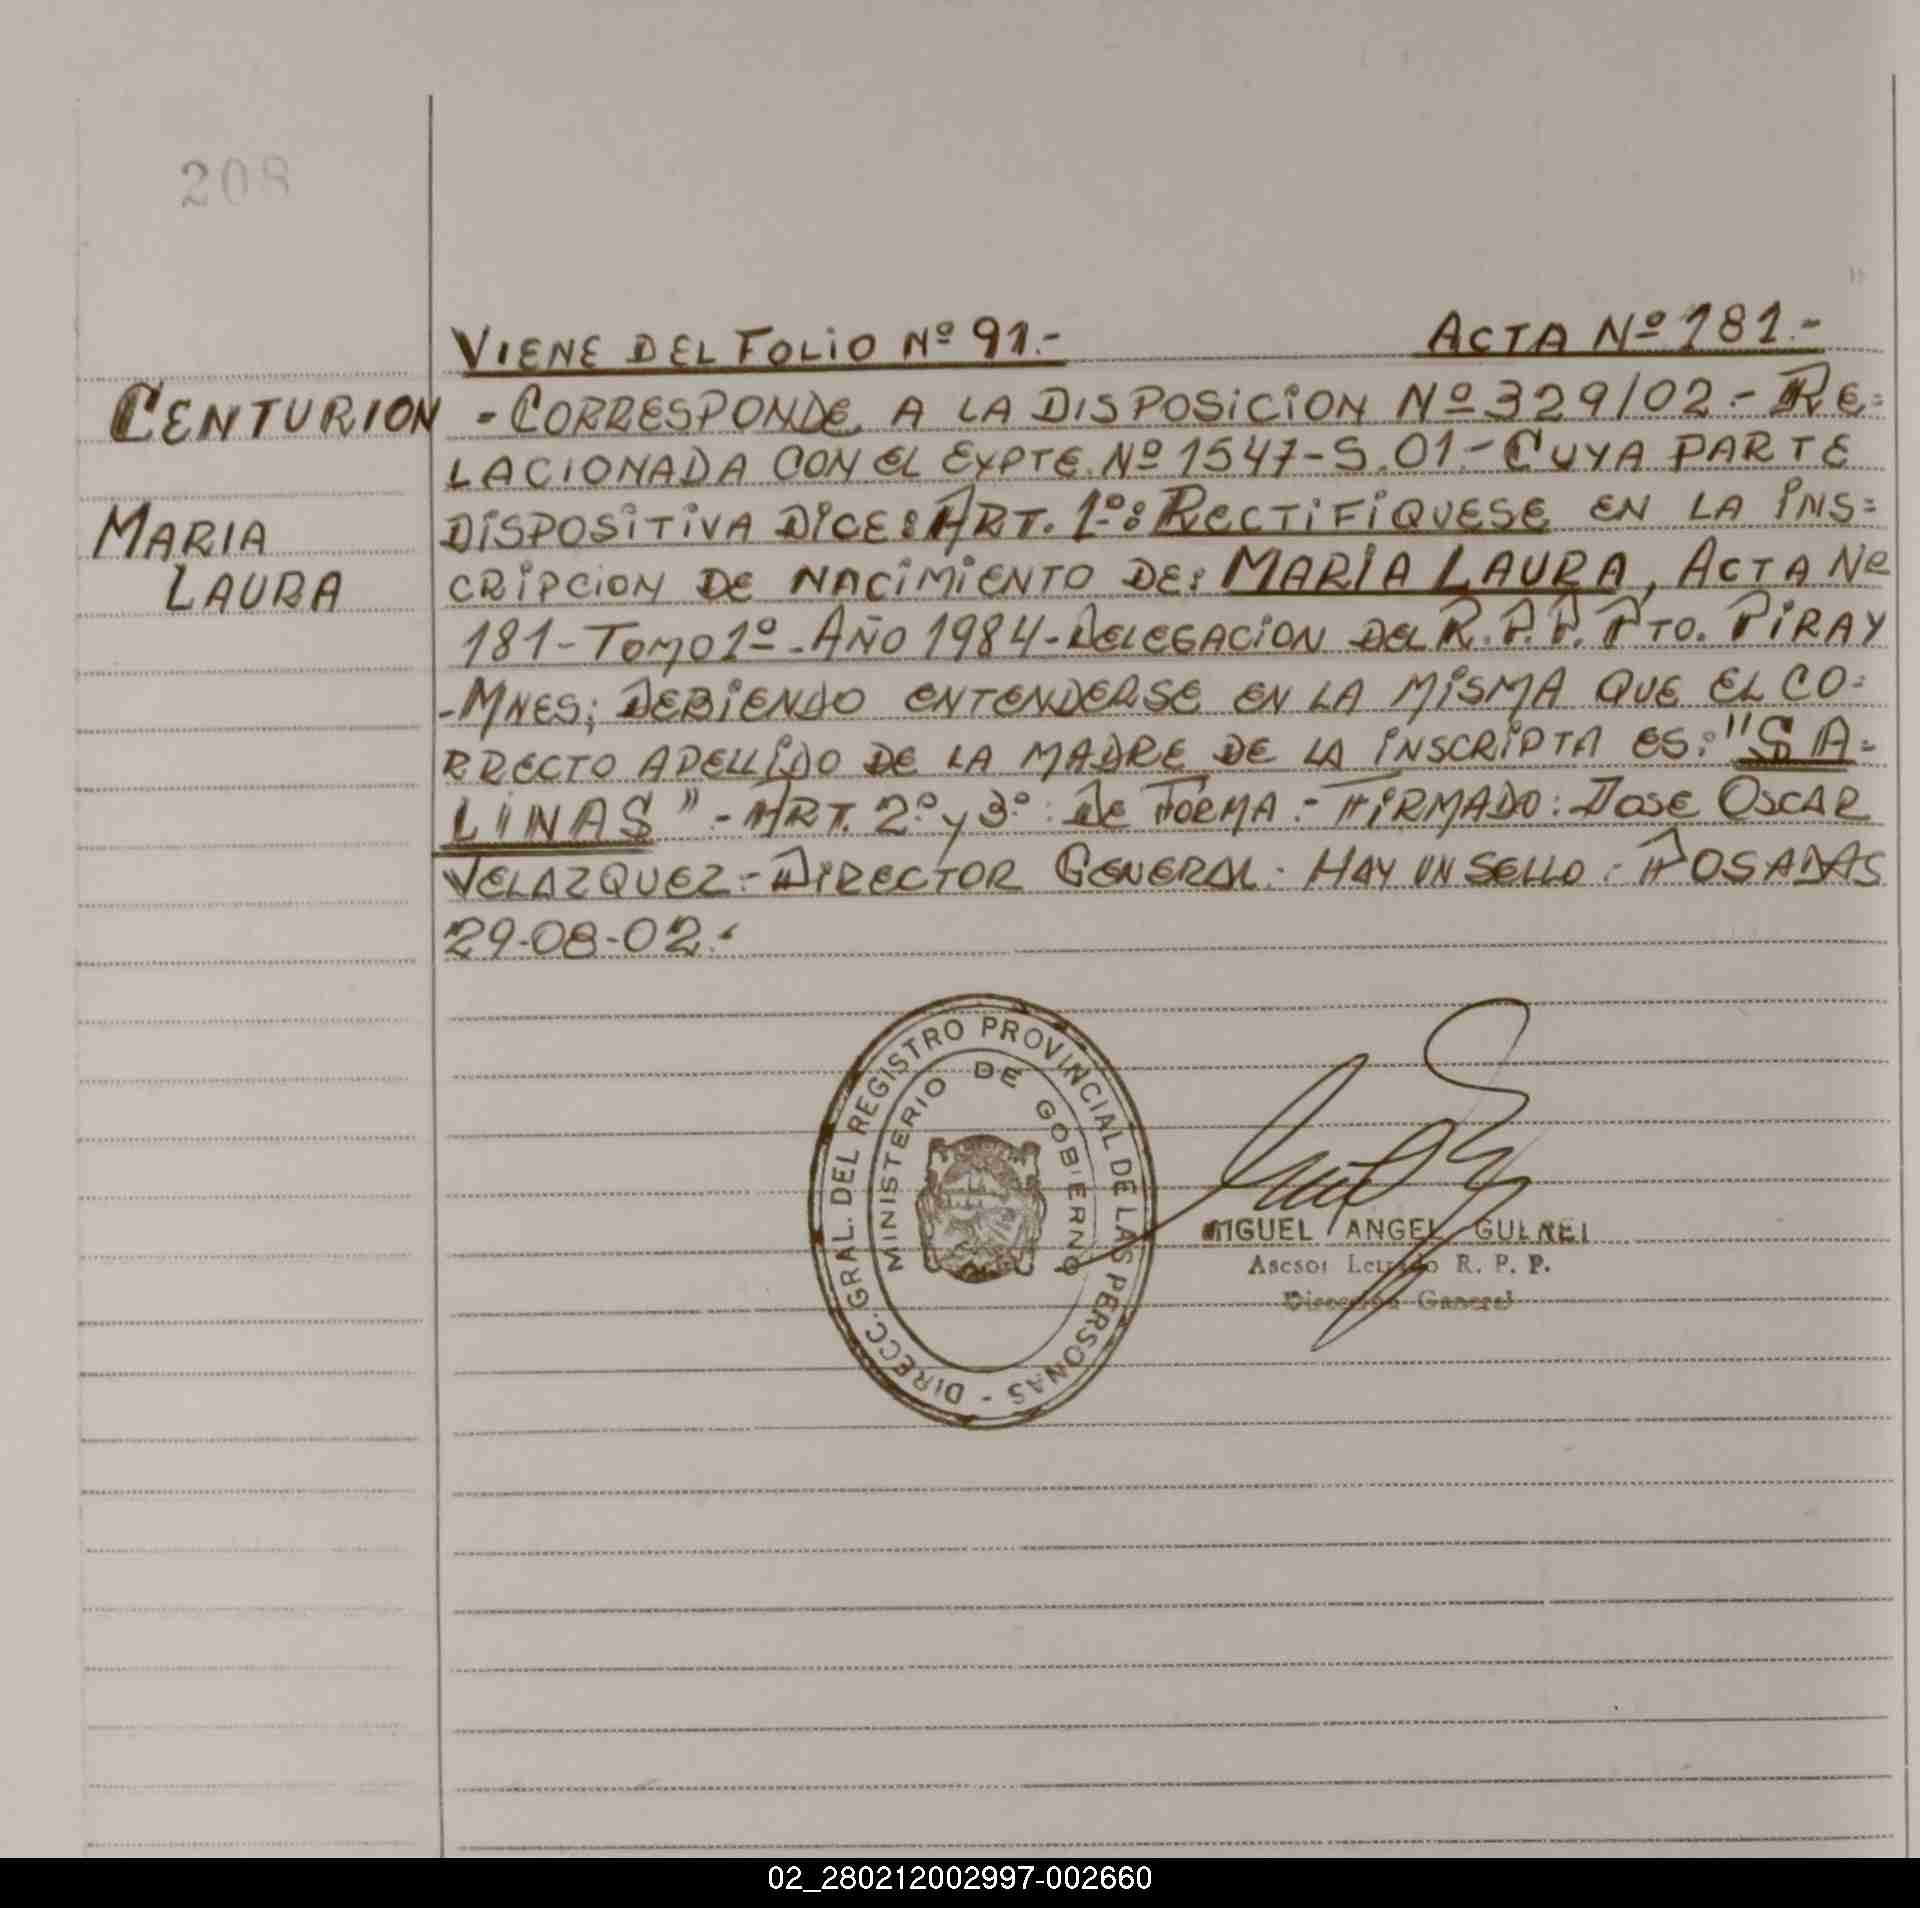 208
VIENE DEL FOLIO Nº 91.-
ACTA Nº 181.-
CENTURION
MARIA
LAURA
- CORRESPONDE A LA DISPOSICION Nº 329/02.- RE=
LACIONADA CON EL EXPTE. Nº 1547-S.01.- CUYA PARTE
DISPOSITIVA DICE: ART. 1º: RECTIFIQUESE EN LA INS=
CRIPCION DE NACIMIENTO DE: MARIA LAURA, ACTA Nº
181-TOMO 1º-AÑO 1984-DELEGACION DEL R.P.P. PTO. PIRAY
-MNES; DEBIENDO ENTENDERSE EN LA MISMA QUE EL CO=
RRECTO APELLIDO DE LA MADRE DE LA INSCRIPTA ES: "SA=
LINAS".- ART. 2º y 3º: DE FORMA.- FIRMADO: JOSE OSCAR
VELAZQUEZ.- DIRECTOR GENERAL. HAY UN SELLO. POSADAS
29-08-02.-
DIRECC. GRAL. DEL REGISTRO PROVINCIAL DE LAS PERSONAS -
MINISTERIO DE GOBIERNO
MIGUEL ANGEL
Asesor Letrado R. P. P.
Dirección General
02_280212002997-002660